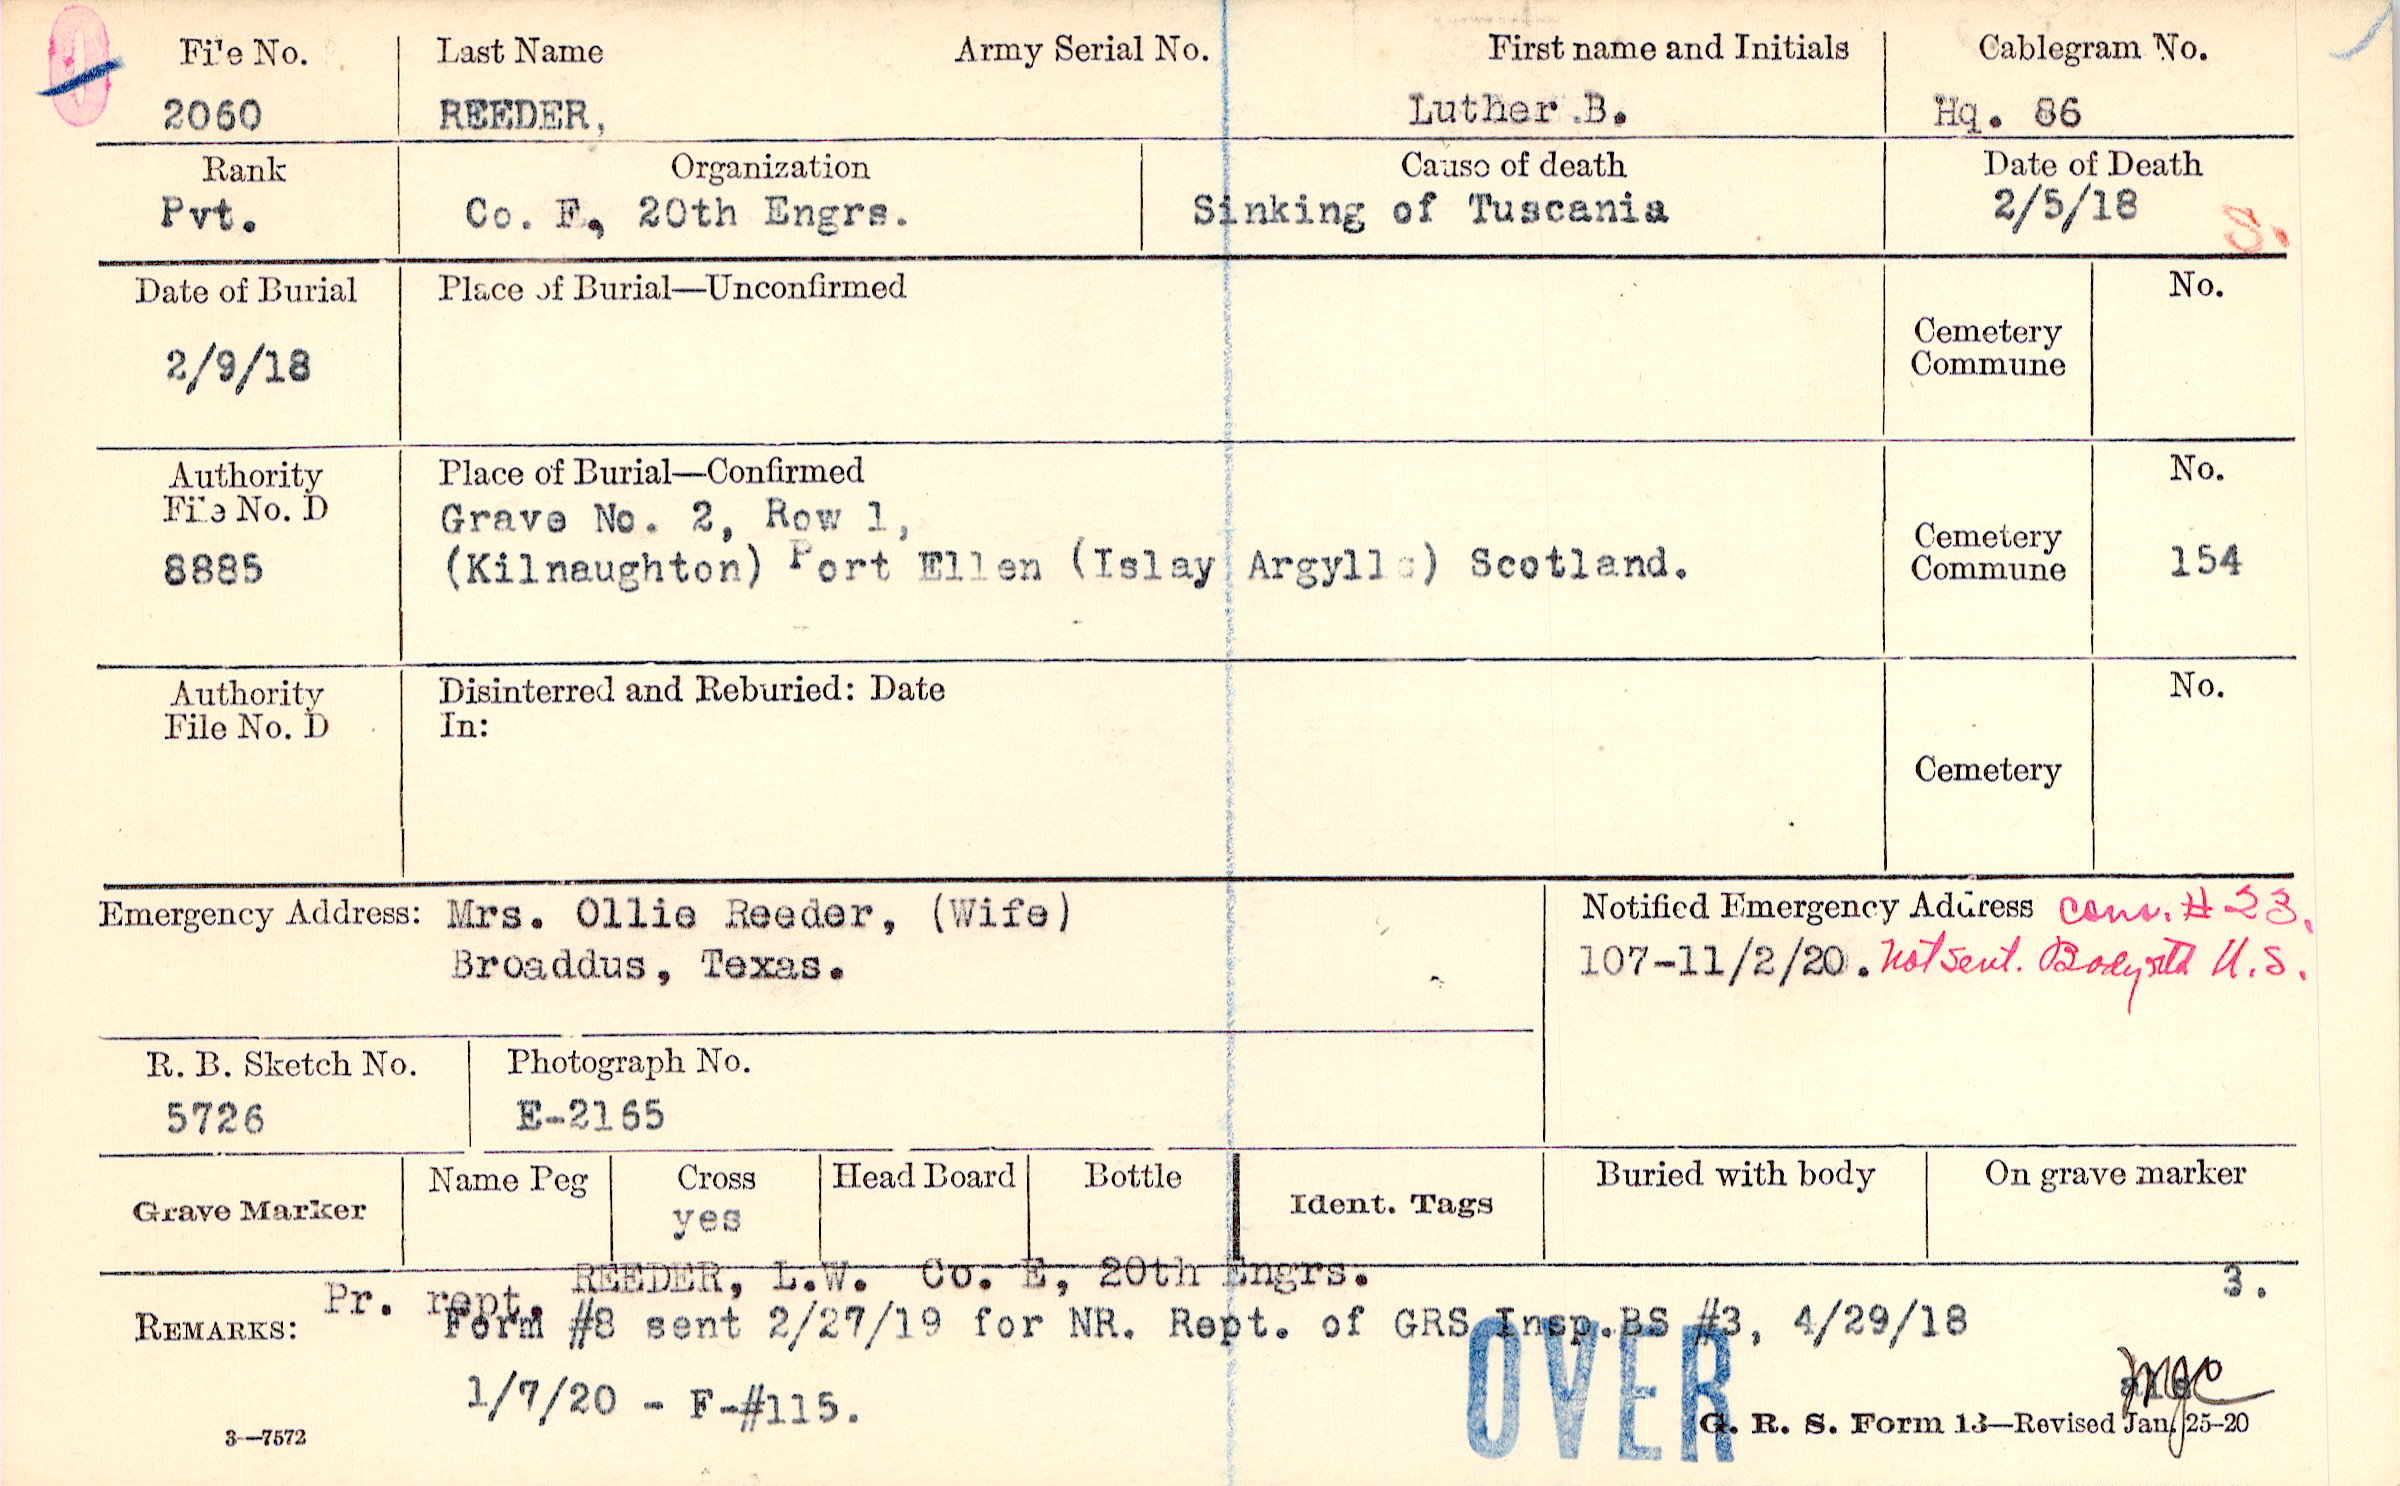 File No. Last Name Army Serial No. First name and Initials Cablegram No.
2060 REEDER, Luther B. Hq. 86
Rank Organization Cause of death Date of Death
Pvt. Co. F, 20th Engrs. Sinking of Tuscania 2/5/18
S.
Date of Burial Place of Burial—Unconfirmed No.
2/9/18
Cemetery
Commune
Authority Place of Burial—Confirmed No.
File No. D
8885
Grave No. 2, Row 1,
(Kilnaughton) Port Ellen (Islay Argylls) Scotland.
Cemetery
Commune
154
Authority Disinterred and Reburied: Date No.
File No. D In:
Cemetery
Emergency Address: Mrs. Ollie Reeder, (Wife)
Broaddus, Texas.
Notified Emergency Address cons. #23.
107-11/2/20. Not sent. Body rtd U.S.
R. B. Sketch No. Photograph No.
5726 E-2165
Grave Marker Name Peg Cross Head Board Bottle Ident. Tags Buried with body On grave marker
yes
Pr. rept. REEDER, L.W. Co. E, 20th Engrs. 3.
REMARKS: Form #8 sent 2/27/19 for NR. Rept. of GRS Insp.BS #3, 4/29/18
1/7/20 - F-#115.
OVER
3—7572 G. R. S. Form 13—Revised Jan. 25-20